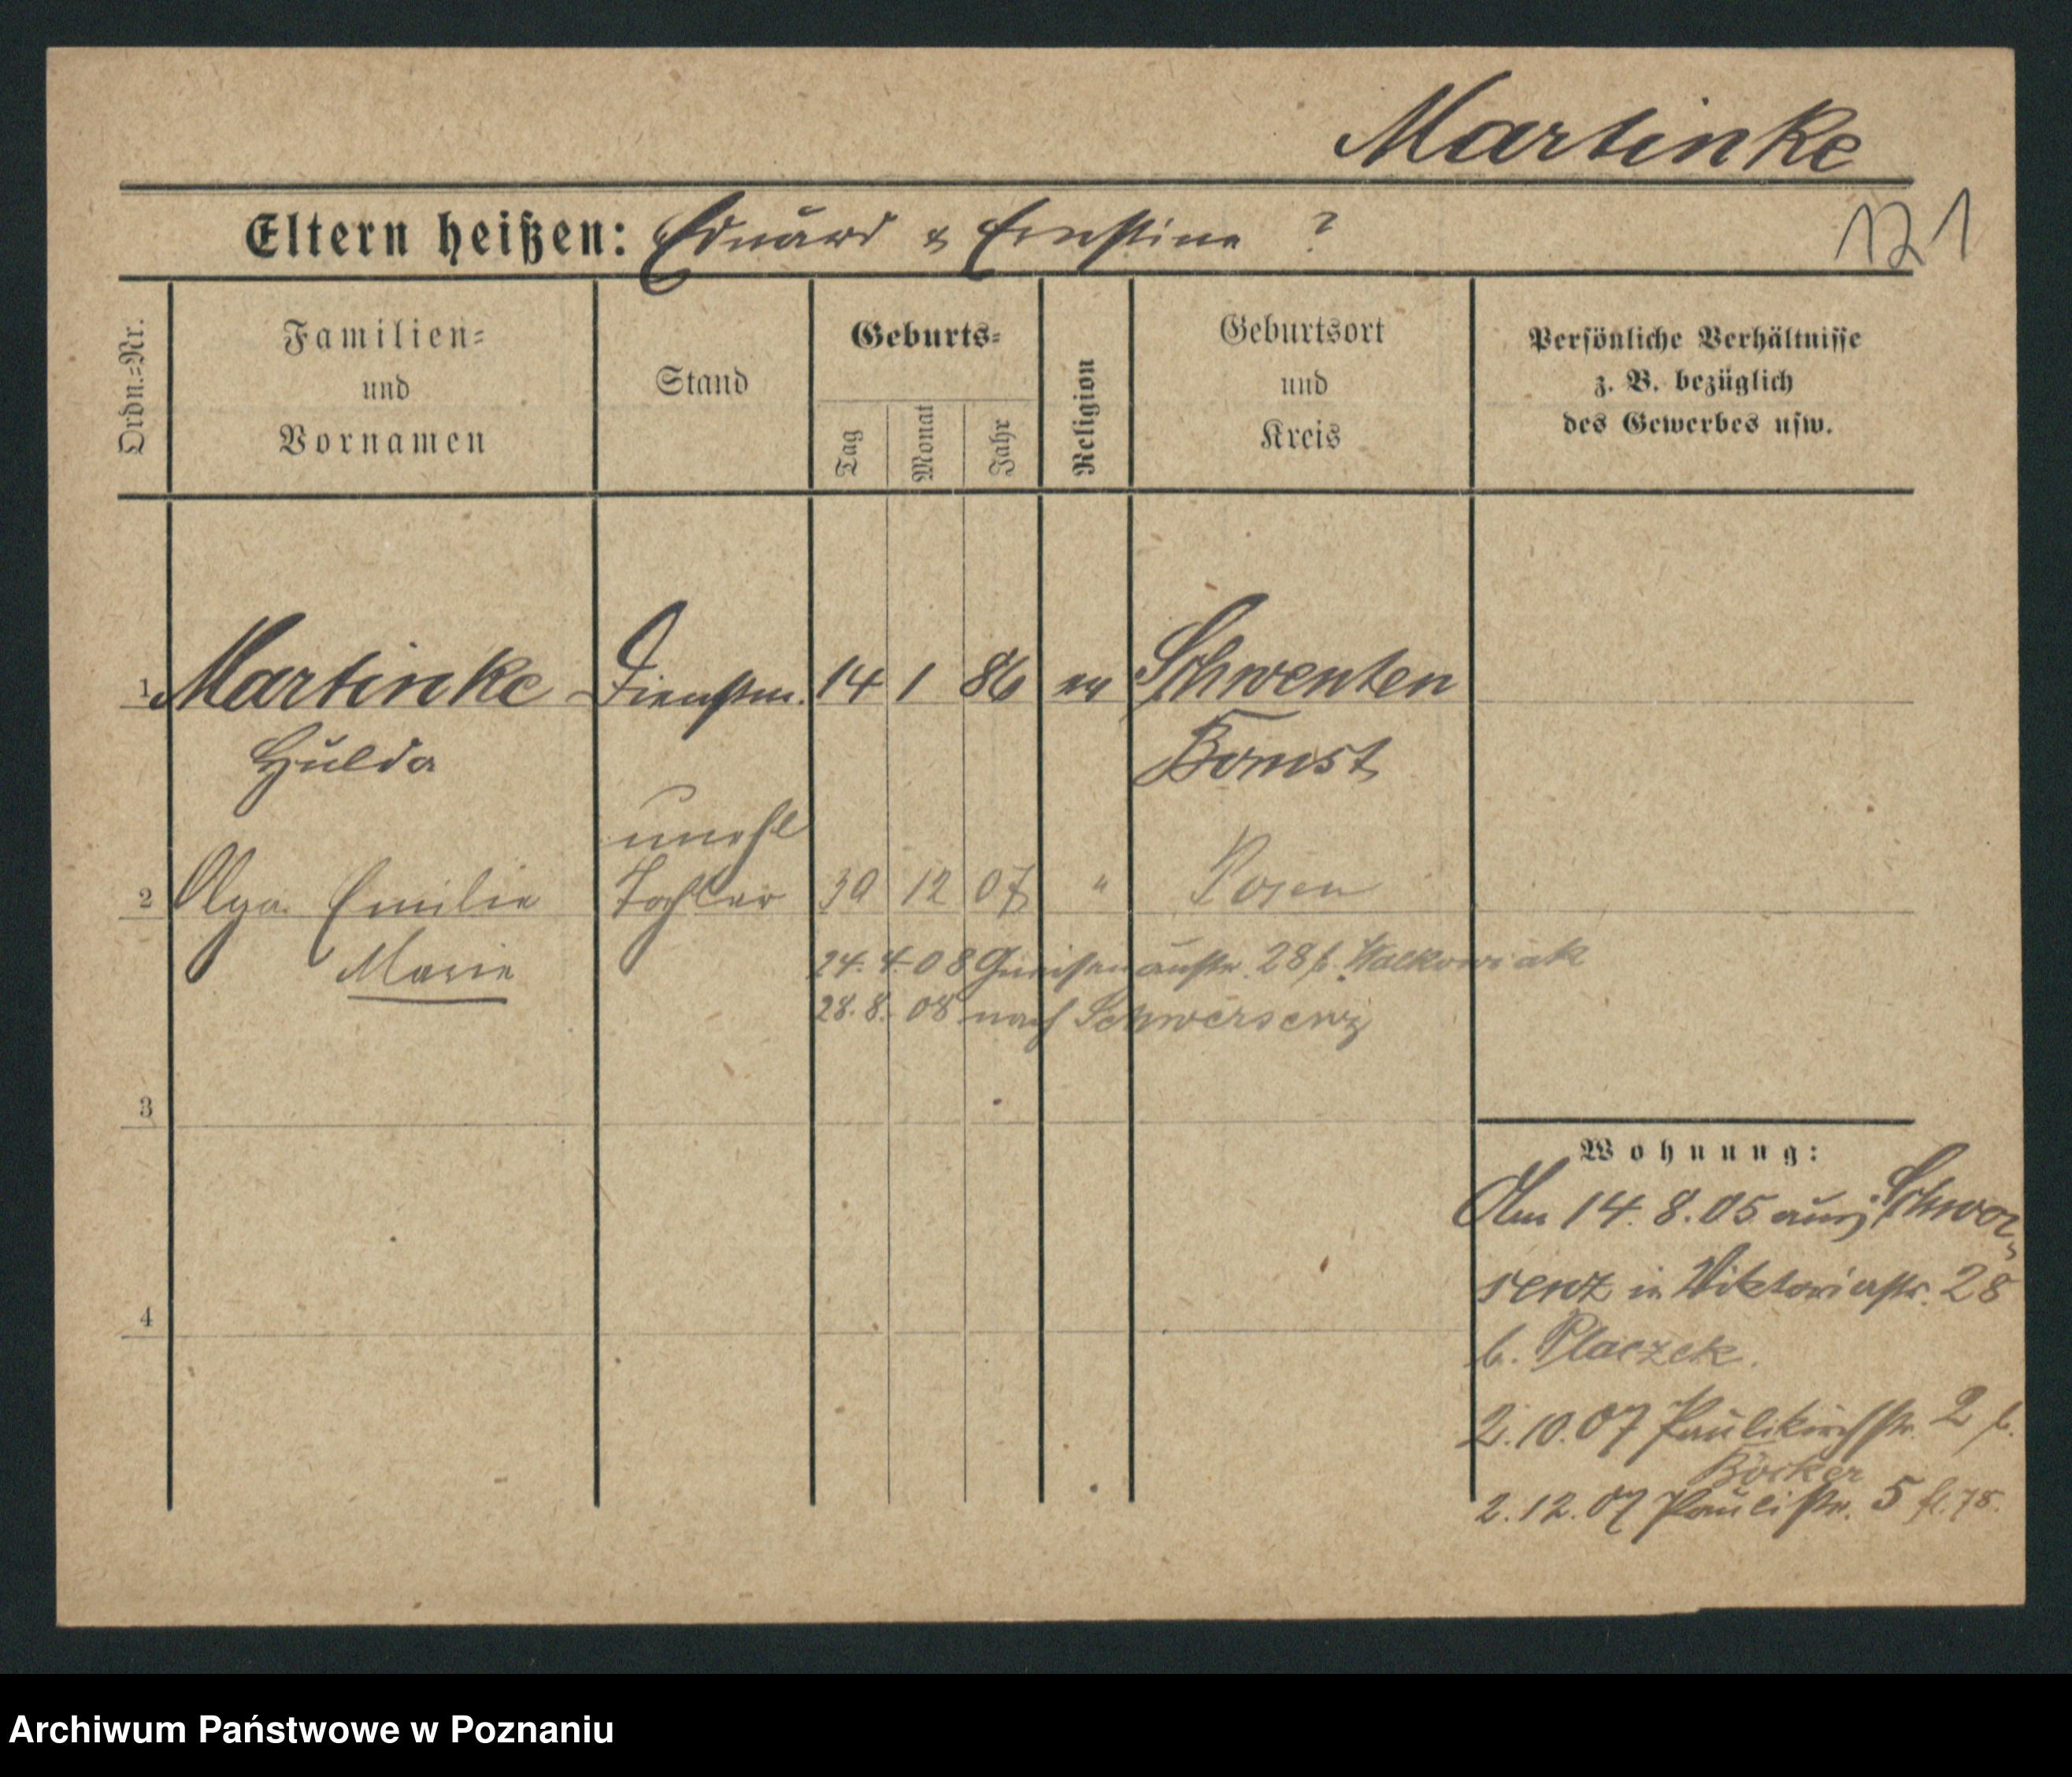 Martinke
Eltern heißen: Eduard & Ernstine ?
121
Ordn.=Nr.
Familien=
und
Vornamen
Stand
Geburts=
Tag
Monat
Jahr
Religion
Geburtsort
und
Kreis
Persönliche Verhältnisse
z. B. bezüglich
des Gewerbes usw.
1 Martinke Dienstm. 14 1 86 ev Schwenten
Hulda Bomst
unehl
2 Olga Emilie Tochter 30 12 07 " Posen
Marie
24. 4. 08 Gneisenaustr. 28 b. Walkowiak
28. 8. 08 nach Schwersenz
3
4
Wohnung:
Am 14. 8. 05 aus Schwer
senz in Viktoriastr. 28
b. Placzek.
2. 10. 07 Paulikirchstr. 2 b.
Böcker
2. 12. 07 Paulistr. 5
Archiwum Państwowe w Poznaniu